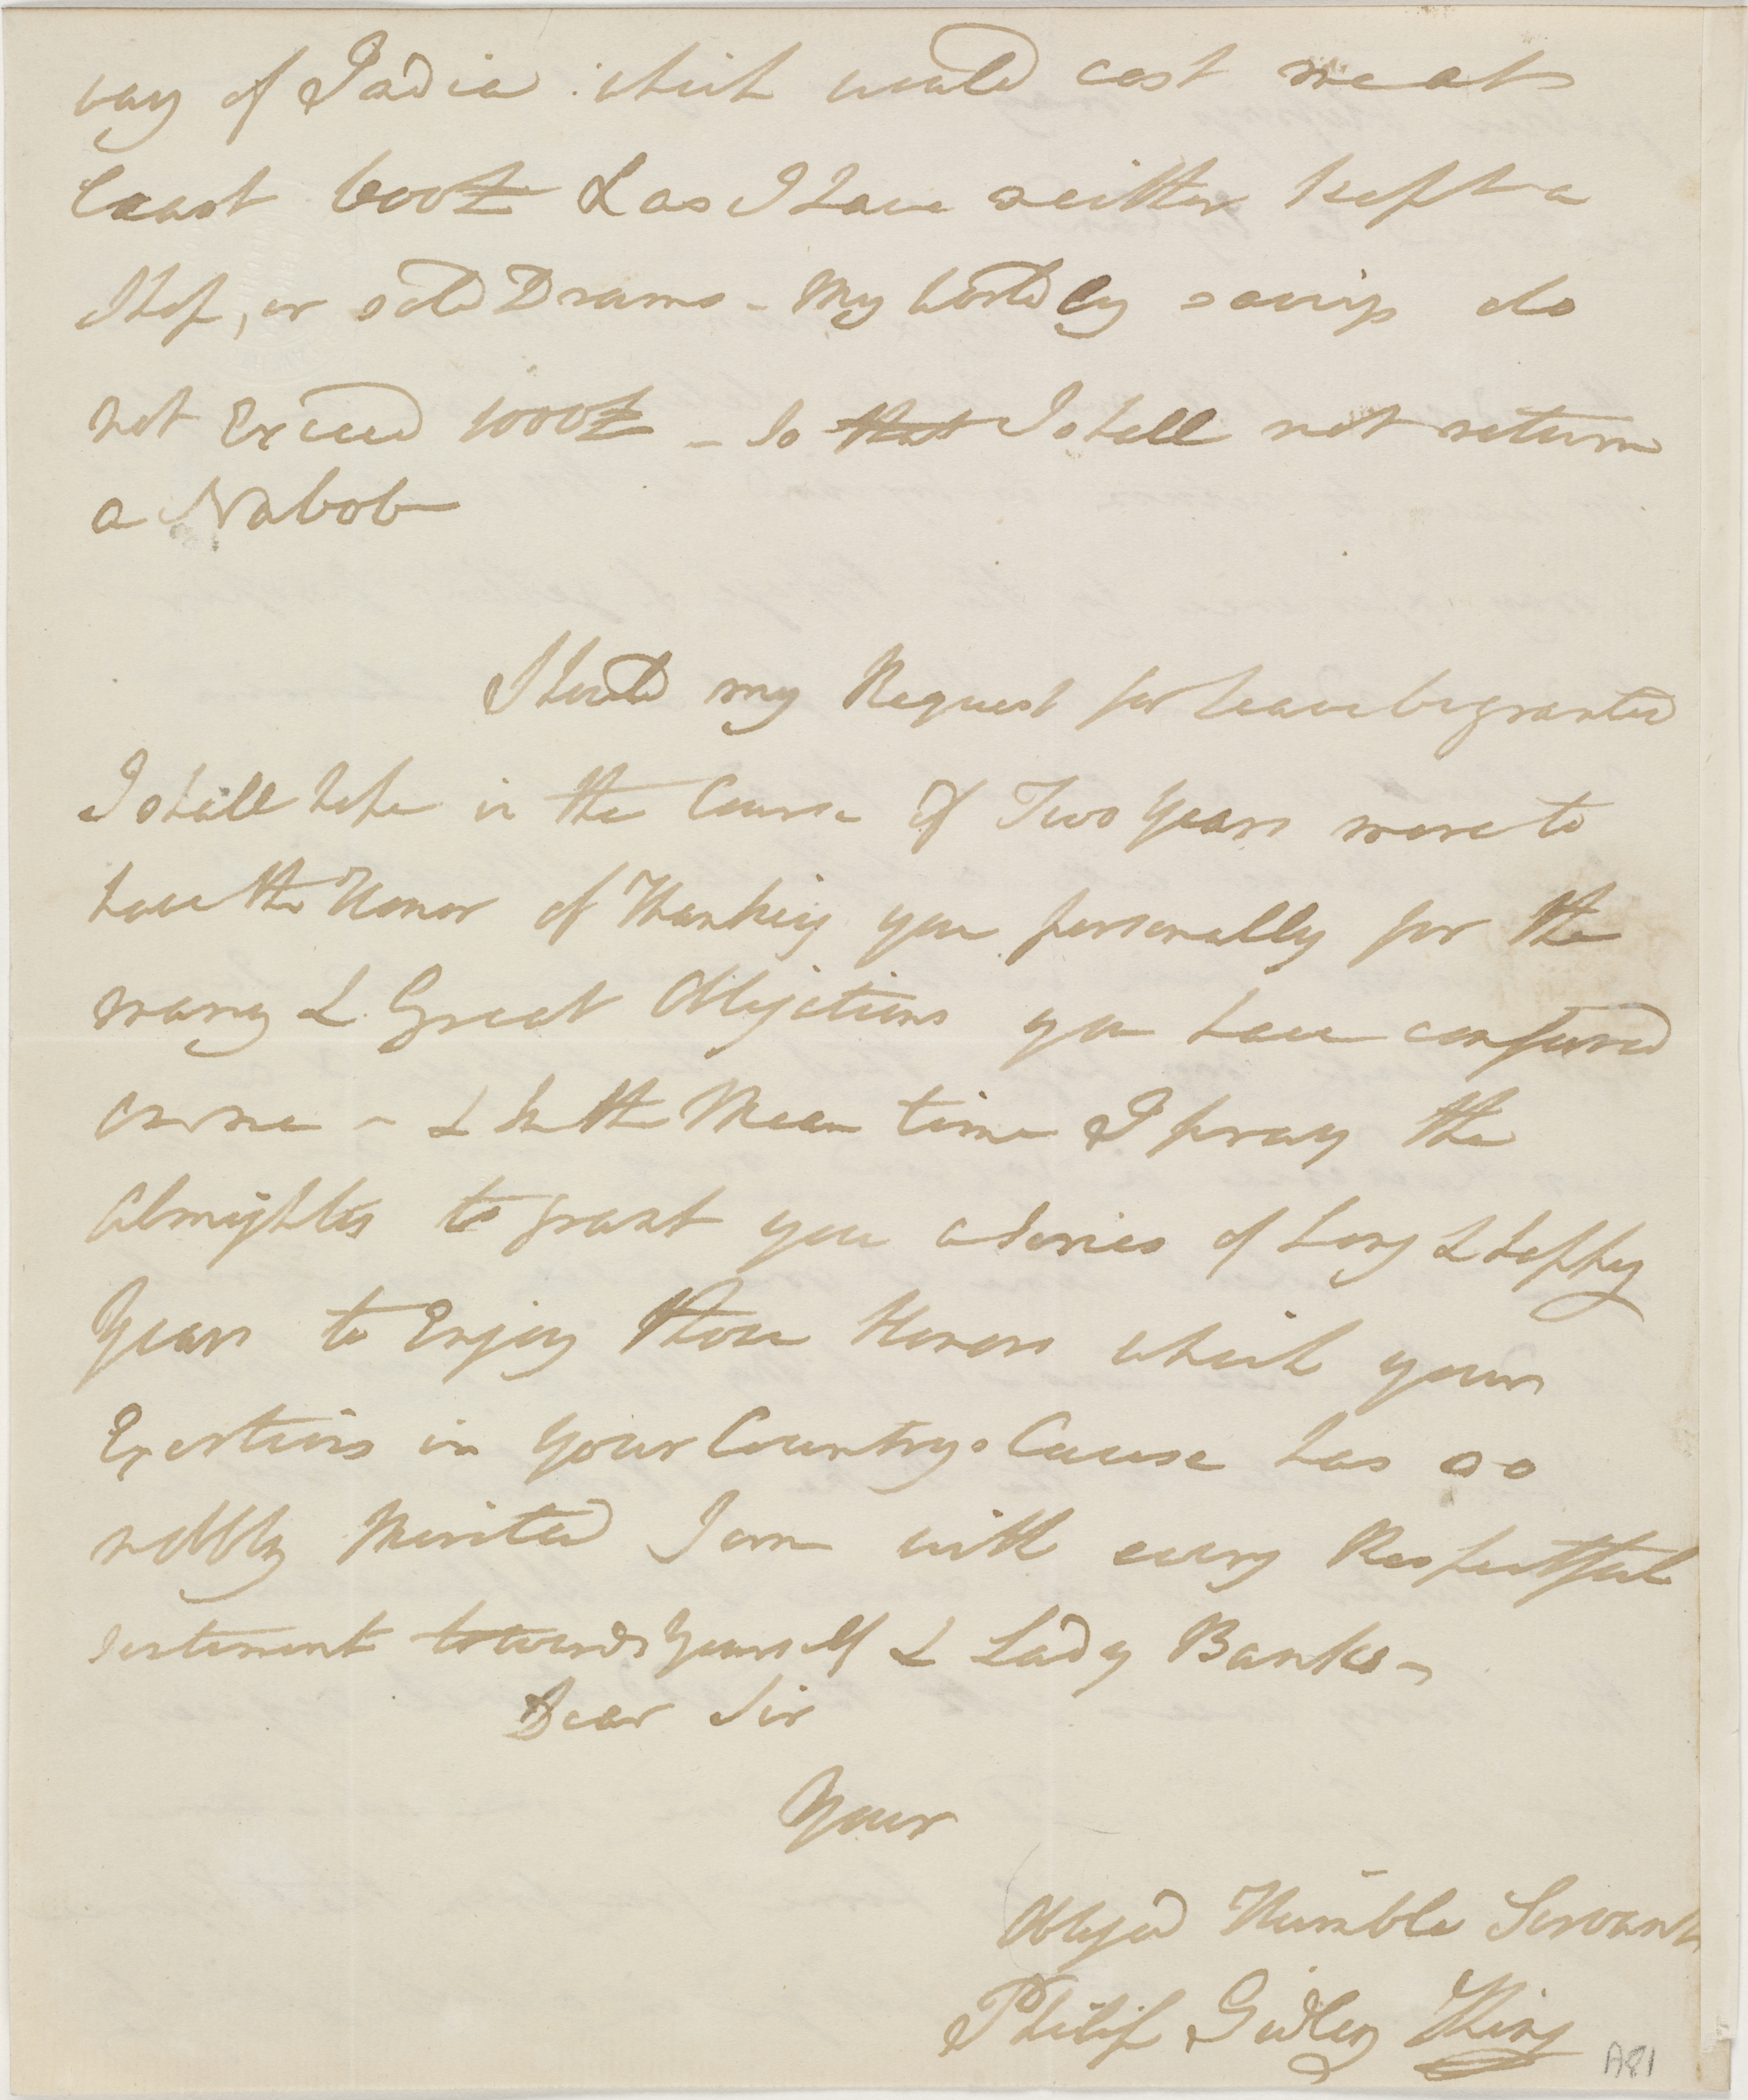 way of India which would cost me at
least 600£ & as I have neither kept a
Shop, or sold Drams - My Worldly savings do
not Exceed 1000£ - So that I shall not return
a Nabob
Should my Request for leave be granted
I shall hope in the Course of Two Years more to
have the Honor of Thanking you personally for the
many & Great Obligations you have confered
on me - & In the Mean time I pray the
Almighty to grant you a Series of Long & happy
Years to Enjoy those Honors which your
Exertions in your Countrys Cause has so
nobly Merited I am with every Respectful
sentiment towards Yourself & Lady Banks -
Dear Sir
Your
Obliged Humble Servant
Philip Gidley King
A81